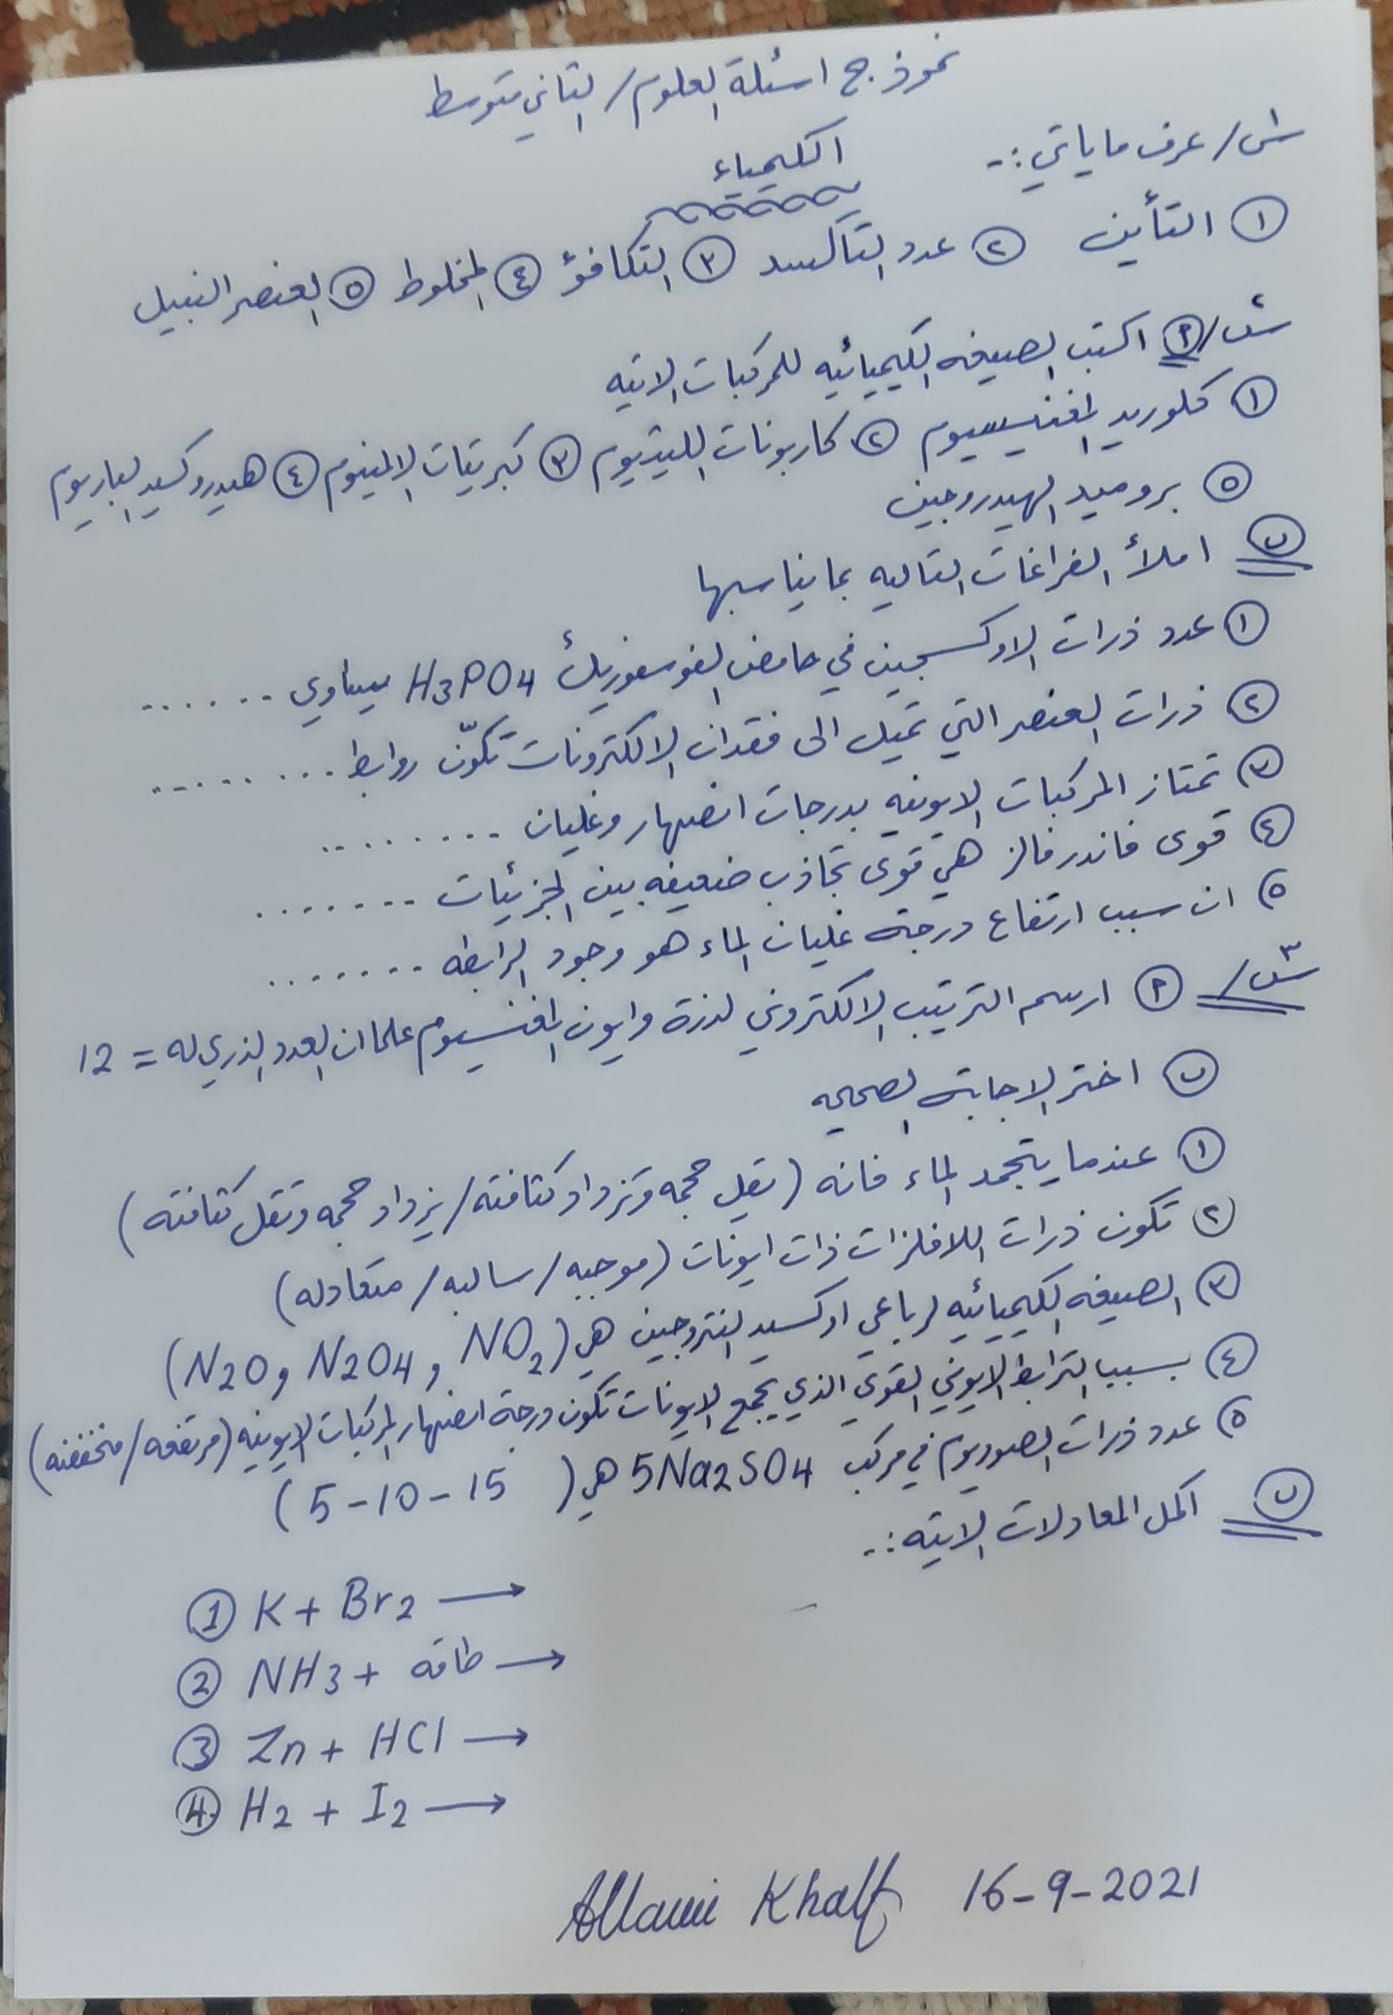 نموذج اسئلة العلوم / الثاني متوسط
الكيمياء
س١/ عرف ما ياتي :-
① التأين ② عدد التأكسد ③ التكافؤ ④ المخلوط ⑤ العنصر النبيل
س٢/ ⓟ اكتب الصيغه الكيميائيه للمركبات الاتيه
① كلوريد المغنيسيوم ② كاربونات الليثيوم ③ كبريتات الالمنيوم ④ هيدروكسيد الباريوم
⑤ بروميد الهيدروجين
ب املأ الفراغات التاليه بما يناسبها
① عدد ذرات الاوكسجين في حامض الفوسفوريك H3PO4 يساوي ......
② ذرات العنصر التي تميل الى فقدان الالكترونات تكوّن روابط .........
③ تمتاز المركبات الايونيه بدرجات انصهار وغليان ........
④ قوى فاندرفالز هي قوى تجاذب ضعيفه بين الجزيئات .......
⑤ ان سبب ارتفاع درجة غليان الماء هو وجود الرابطه .......
س٣/ ⓟ ارسم الترتيب الالكتروني لذرة وايون المغنسيوم علما ان العدد الذري له = 12
ب اختر الاجابة الصحيحه
① عندما يتجمد الماء فانه (يقل حجمه وتزداد كثافته / يزداد حجمه وتقل كثافته)
② تكون ذرات اللافلزات ذات ايونات (موجبه / سالبه / متعادله)
③ الصيغه الكيميائيه لرباعي اوكسيد النتروجين هي (N2O , N2O4 , NO2)
④ بسبب الترابط الايوني القوي الذي يجمع الايونات تكون درجة انصهار المركبات الايونيه (مرتفعه / منخفضه)
⑤ عدد ذرات الصوديوم في مركب 5Na2SO4 هي (5-10-15)
ب اكمل المعادلات الاتيه :-
① K + Br2 ⟶
② NH3 + طاقه ⟶
③ Zn + HCl ⟶
④ H2 + I2 ⟶
Allawi Khalf 16-9-2021